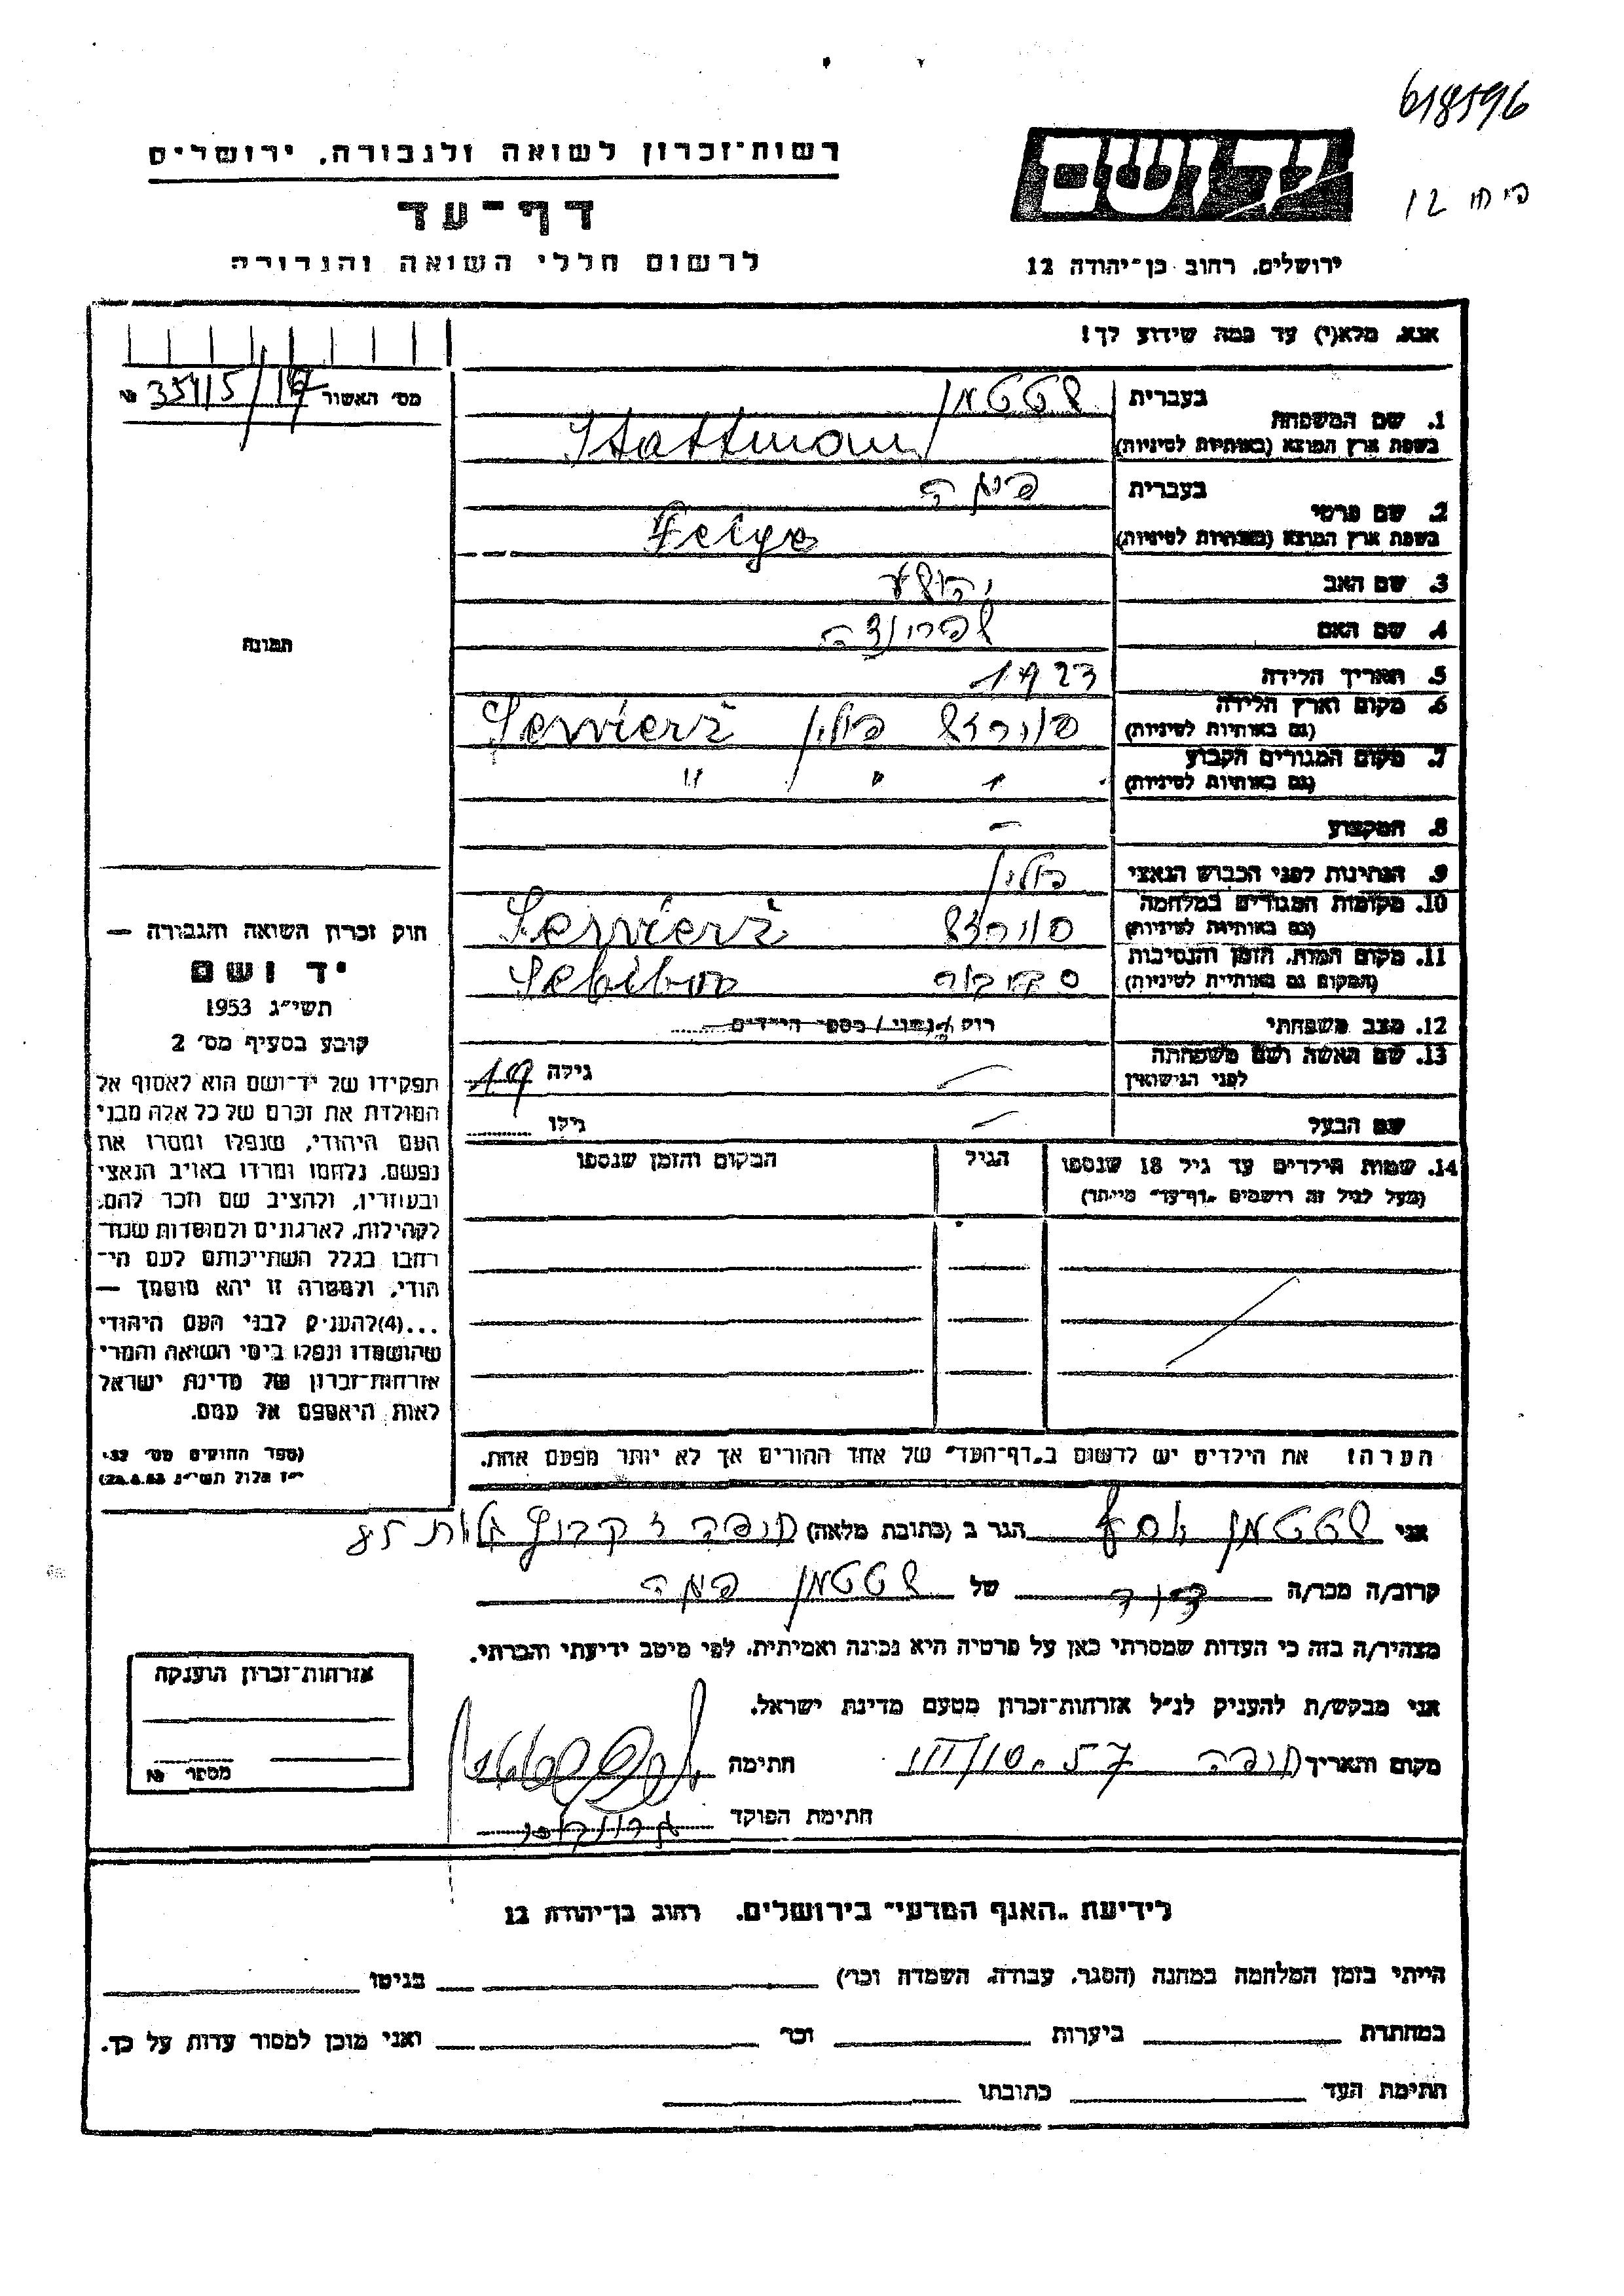 618596
רשות-זכרון לשואה ולגבורה, ירושלים
דף-עד
לרשום חללי השואה והגבורה
ירושלים, רחוב בן-יהודה 12
אנא, מלא(י) עד כמה שידוע לך!
מס' האשור 35415/17 №
1. שם המשפחה בעברית שטטמן
בשפת ארץ המוצא (באותיות לטיניות) Stattman
2. שם פרטי בעברית פיגה
בשפת ארץ המוצא (באותיות לטיניות) Feiga
3. שם האב יהושע
4. שם האם שפרינצה
5. תאריך הלידה 1923
6. מקום וארץ הלידה סוירז' פולין Serwierż
(גם באותיות לטיניות)
7. מקום המגורים הקבוע " " "
(גם באותיות לטיניות)
8. המקצוע –
9. הנתינות לפני הכבוש הנאצי פולין
10. מקומות המגורים במלחמה Serwierż
(גם באותיות לטיניות)
11. מקום המות, הזמן והנסיבות סביבור Sebibor
(המקום גם באותיות לטיניות)
12. מצב משפחתי רוק/ה נשוי/ מספר הילדים
13. שם האשה ושם משפחתה גילה 19
לפני הנישואין
שם הבעל גילו
14. שמות הילדים עד גיל 18 שנספו הגיל המקום והזמן שנספו
(מעל לגיל זה רושמים "דף-עד" מיוחד)
הערה! את הילדים יש לרשום ב"דף-העד" של אחד ההורים אך לא יותר מפעם אחת.
תמונה
חוק זכרון השואה והגבורה —
יד ושם
תשי"ג 1953
קובע בסעיף מס' 2
תפקידו של יד-ושם הוא לאסוף אל
המולדת את זכרם של כל אלה מבני
העם היהודי, שנפלו ומסרו את
נפשם, נלחמו ומרדו באויב הנאצי
ובעוזריו, ולהציב שם וזכר להם,
לקהילות, לארגונים ולמוסדות שנח-
רבו בגלל השתייכותם לעם הי-
הודי, ולמטרה זו יהא מוסמך —
...(4) להעניק לבני העם היהודי
שהושמדו ונפלו בימי השואה והמרי
אזרחות-זכרון של מדינת ישראל
לאות היאספם אל עמם.
(ספר החוקים מס' 132,
י"ז אלול תשי"ג 28.8.53)
אני שטטמן הגר ב (כתובת מלאה) חיפה
קרוב/ה מכר/ה דוד של שטטמן פיגה
מצהיר/ה בזה כי העדות שמסרתי כאן על פרטיה היא נכונה ואמיתית, לפי מיטב ידיעתי והכרתי.
אני מבקש/ת להעניק לנ"ל אזרחות-זכרון מטעם מדינת ישראל.
מקום ותאריך חיפה חתימה
חתימת הפוקד
אזרחות-זכרון הוענקה
מספר №
לידיעת "האגף המדעי" בירושלים, רחוב בן-יהודה 12
הייתי בזמן המלחמה במחנה (הסגר, עבודה, השמדה וכו') בגיטו
במחתרת ביערות וכו' ואני מוכן למסור עדות על כך.
חתימת העד כתובתו